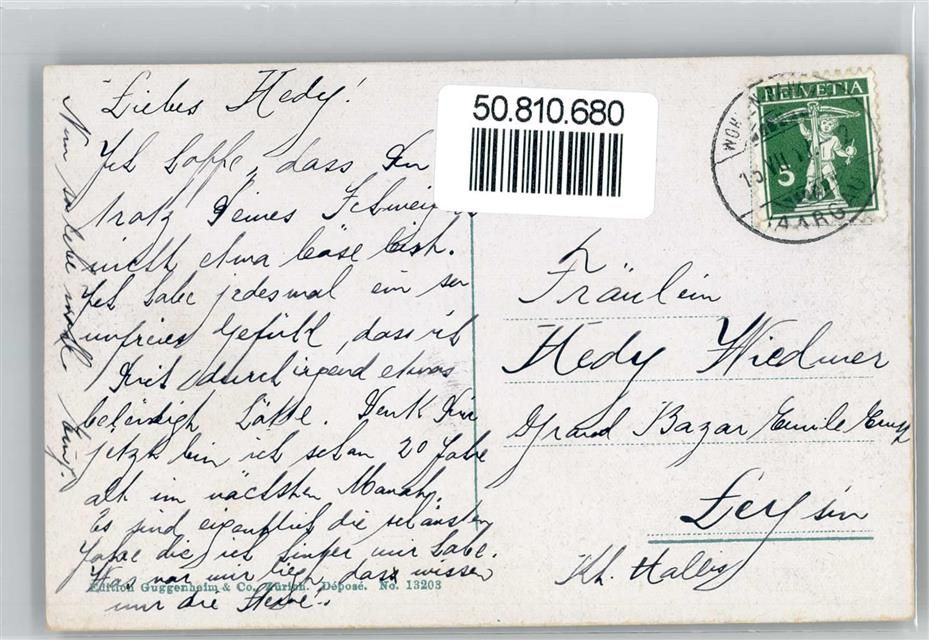 Liebes Hedy!
Ich hoffe, dass Du
trotz Deines Schweigens
nicht etwa böse bist.
Ich habe jedesmal ein so
unfreies Gefühl, dass ich
Dich durch irgend etwas
beleidigt hätte. Denk Dir
jetzt bin ich schon 20 Jahre
alt im nächsten Monat.
Es sind eigentlich die schönsten
Jahre die ich hinter mir habe.
Was vor mir liegt, das wissen
nur die Sterne!
Nun so lebe wohl
50.810.680
HELVETIA
5
WOHLEN
15 VII
AARGAU
Fräulein
Hedy Wiedmer
Grand Bazar Emile
Leysin
Kt. Wallis
Edition Guggenheim & Co., Zürich. Déposé. No. 13203